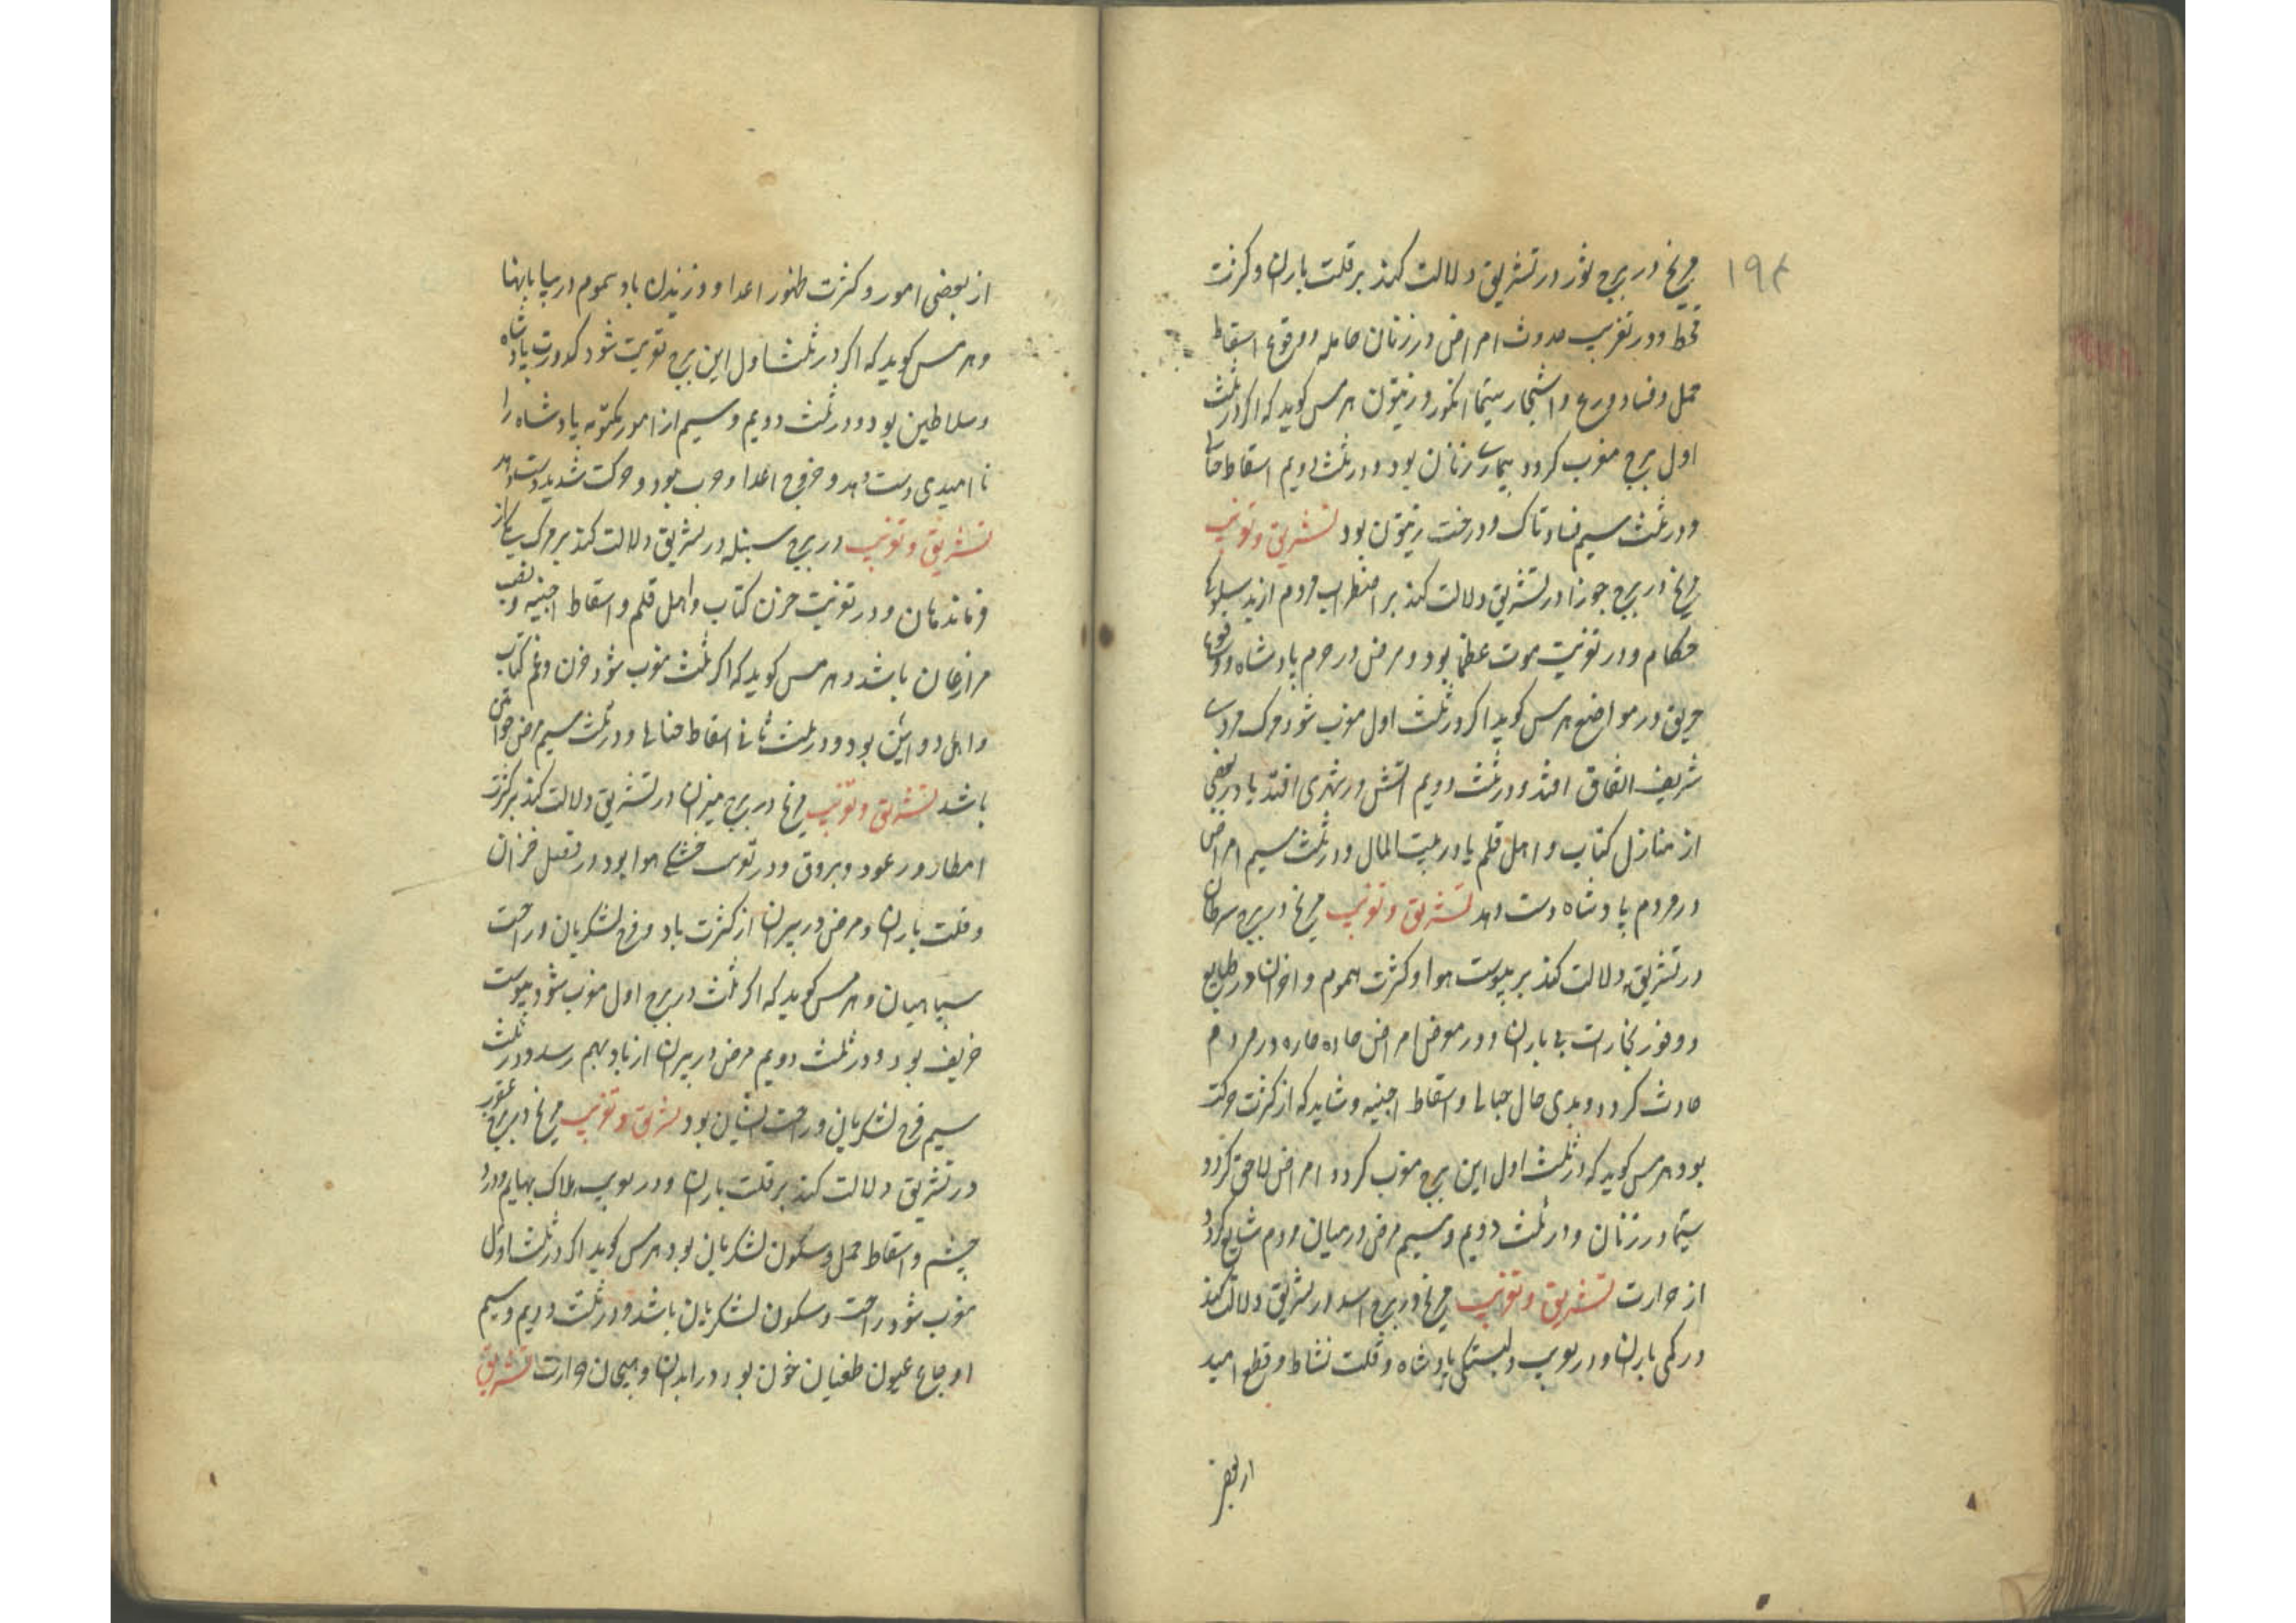 ۱۹۴
مریخ در برج ثور در تشریق دلالت کند بر قلت باران و کثرت
قحط و در تغریب حدوث امراض در زنان حامله و وقوع اسقاط
حمل و فساد زرع و اشجار سیما انکور و زیتون هرمس کوید که اکر در ثلث
اول برج مغرب کردد بیماری زنان بود و در ثلث دویم اسقاط
و در ثلث سیم فساد تاک و درخت زیتون بود تشریق و تغریب
مریخ در برج جوزا در تشریق دلالت کند بر اضطراب مردم از بد سلوکی
حکام و در تغریب موت عظما بود و مرض در حرم پادشاه و وقوع
حریق در مواضع هرمس کوید اکر در ثلث اول مغرب شود مرک مردی
شریف اتفاق افتد و در ثلث دویم آتش در شهری افتد یا در بعضی
از منازل کتاب و اهل قلم یا در بیت المال و در ثلث سیم امراض
در مردم پادشاه دست دهد تشریق و تغریب مریخ در برج سرطان
در تشریق دلالت کند بر یبوست هوا و کثرت هموم و احزان در طبایع
و وفور بخارات بی باران و در امراض حاده حاره در مردم
حادث کردد و بدی حال حبالی و اسقاط اجنیه و شاید که از کثرت حرکت
بود هرمس کوید که در ثلث اول این برج مغرب کردد امراض لاحق کردد
سیما در زنان و در ثلث دویم و سیم مرض در میان مردم شایع کردد
از حرارت تشریق و تغریب مریخ در برج اسد در تشریق دلالت کند
در کمی باران و در تغریب دلبستکی پادشاه و قلت نشاط و قطع امید
از بعضی
از بعضی امور و کثرت ظهور اعدا و وزیدن باد سموم در بیابانها
و هرمس کوید که اکر در ثلث اول این برج تغریب شود کدورت پادشاه
و سلاطین بود و در ثلث دویم و سیم از امور مکتومه پادشاه را
نا امیدی دست دهد و خروج اعدا و حرب بود و حرکت شدید دست دهد
تشریق و تغریب در برج سنبله در تشریق دلالت کند بر مرک یکی از
فرماندهان و در تغریب حزن کتاب و اهل قلم و اسقاط اجنیه و تعب
مزارعان باشد و هرمس کوید که اکر ثلث مغرب شود حزن و غم کتاب
و اهل دواوین بود و در ثلث ثانی اسقاط حبالی و در ثلث سیم مرض خواتین
باشد تشریق و تغریب مریخ در برج میزان در تشریق دلالت کند بر کثرت
امطار و رعود و بروق و در تغریب خشکی هوا بود در فصل خزان
و قلت باران و مرض در پیران از کثرت باد و فرح لشکریان و راحت
سپاهیان و هرمس کوید که اکر ثلث در برج اول مغرب شود یبوست
خریف بود و در ثلث دویم مرض در پیران از باد بهم رسد و در ثلث
سیم فرح لشکریان و راحت ایشان بود تشریق و تغریب مریخ در برج عقرب
در تشریق دلالت کند بر قلت باران و در تغریب هلاک بهایم و درد
چشم و اسقاط حمل و سکون لشکریان بود هرمس کوید اکر در ثلث اول
مغرب شود راحت و سکون لشکریان باشد و در ثلث دویم و سیم
اوجاع عیون طغیان خون بود در ابدان و هیجان حرارت تشریق